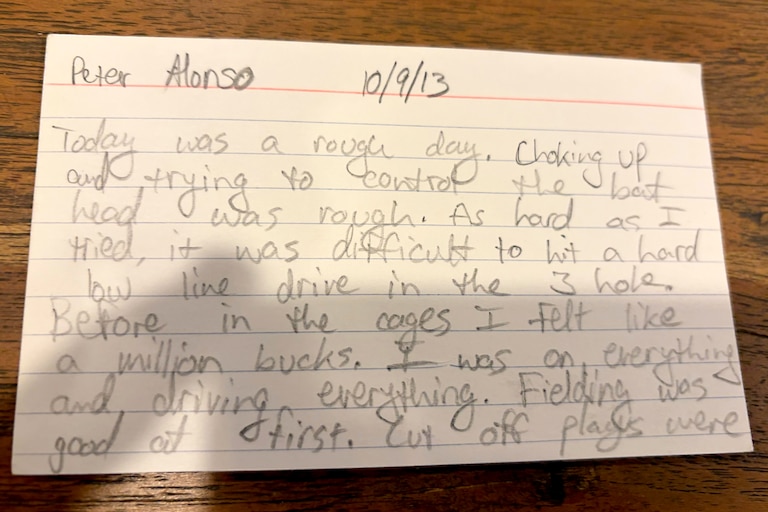 Peter Alonso 10/9/13
Today was a rough day. Choking up
and trying to control the bat
head was rough. As hard as I
tried, it was difficult to hit a hard
low line drive in the 3 hole.
Before in the cages I felt like
a million bucks. I was on everything
and driving everything. Fielding was
good at first. Cut off plays were